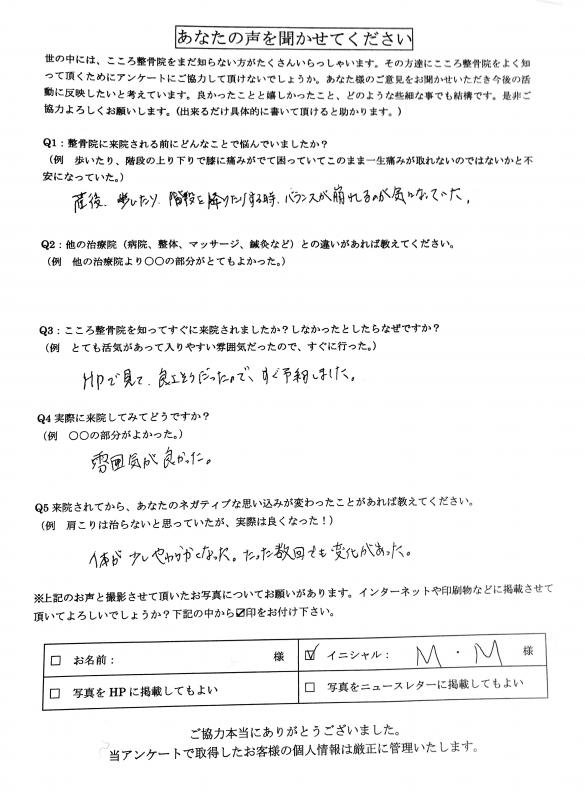 あなたの声を聞かせてください
世の中には、こころ整骨院をまだ知らない方がたくさんいらっしゃいます。その方達にこころ整骨院をよく知
って頂くためにアンケートにご協力して頂けないでしょうか。あなた様のご意見をお聞かせいただき今後の活
動に反映したいと考えています。良かったことと嬉しかったこと、どのような些細な事でも結構です。是非ご
協力よろしくお願いします。(出来るだけ具体的に書いて頂けると助かります。)
Q1：整骨院に来院される前にどんなことで悩んでいましたか？
（例　歩いたり、階段の上り下りで膝に痛みがでて困っていてこのまま一生痛みが取れないのではないかと不
安になっていた。）
産後、歩いたり、階段を降りたりする時、バランスが崩れるのが気になっていた。
Q2：他の治療院（病院、整体、マッサージ、鍼灸など）との違いがあれば教えてください。
（例　他の治療院より〇〇の部分がとてもよかった。）
Q3：こころ整骨院を知ってすぐに来院されましたか？しなかったとしたらなぜですか？
（例　とても活気があって入りやすい雰囲気だったので、すぐに行った。）
HPで見て、良さそうだったので、すぐ予約しました。
Q4 実際に来院してみてどうですか？
（例　〇〇の部分がよかった。）
雰囲気が良かった。
Q5 来院されてから、あなたのネガティブな思い込みが変わったことがあれば教えてください。
（例　肩こりは治らないと思っていたが、実際は良くなった！）
体が少しやわらかくなった。たった数回でも変化があった。
※上記のお声と撮影させて頂いたお写真についてお願いがあります。インターネットや印刷物などに掲載させて
頂いてよろしいでしょうか？下記の中から☑印をお付け下さい。
□ お名前：　様　☑ イニシャル：　M・M　様
□ 写真をHPに掲載してもよい　□ 写真をニュースレターに掲載してもよい
ご協力本当にありがとうございました。
当アンケートで取得したお客様の個人情報は厳正に管理いたします。